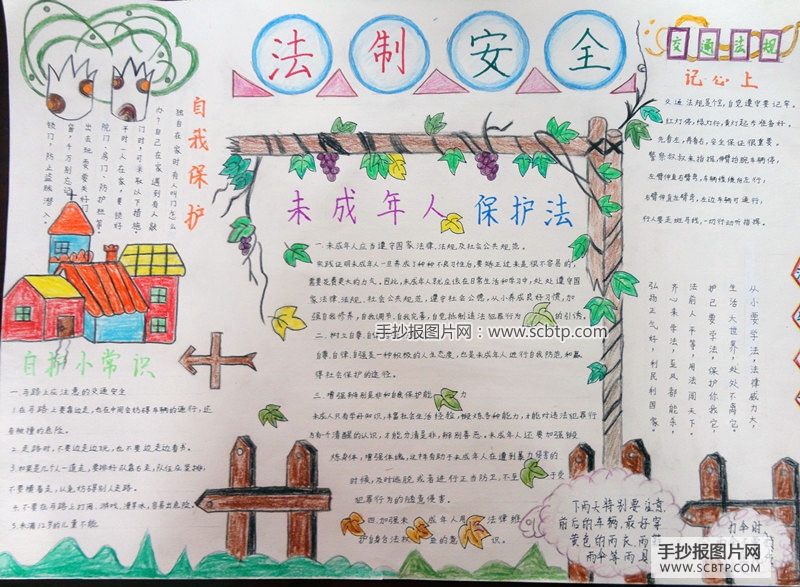 法制安全
交通法规
记心上
交通法规是个宝,自觉遵守要记牢。
红灯停,绿灯行,黄灯起步准备好。
先看左,再看右,安全保证很重要。
左臂伸直右臂弯,
右臂伸直左臂弯,左边车辆可通行,
行人要走斑马线,一切行动听指挥。
自我保护
独自在家时有人叫门怎么
办?自己在家遇到有人敲
门时,可采取以下措施。
平时一人在家,要锁好
院门、房门、防护栏等。
出去玩要关好门
窗,千万别忘记
锁门,防止盗贼潜入。
未成年人保护法
一.未成年人应当遵守国家法律,法规及社会公共规范。
实践证明未成年人一旦养成了种种不良习性后,要矫正过来是很不容易的,
需要花费更大的力气。因此,未成年人就应该在日常生活和学习中,处处遵守国
家法律、法规、社会公共规范,遵守社会公德,从小养成良好习惯,加
强自我修养,自我调节,自我完善,自觉抵制违法犯罪行为的引诱。
二.树立自尊,自
自尊,自律,自强是一种积极的人生态度,也是未成年人进行自我防范和赢
得社会保护的途径。
三.增强辨别是非和自我保护能力
未成年人只有学好知识,丰富社会生活经验,锻炼各种能力,才能对违法犯罪行
为有个清醒的认识,才能分清是非,辨别善恶。未成年人还要加强锻
炼身体,增强体魄,这样有助于未成年人在遭到暴力侵害的
时候,及时逃脱或者进行正当防卫,不至于受
犯罪行为的随意侵害。
四.加强未成年人用法律维
护自合法权益的意识。
手抄报图片网:www.scbtp.com
从小要学法,法律威力大,
生活大世界,处处不离它。
护己要学法,保护你我它,
法前人平等,用法闯天下。
齐心来学法,歪风都能杀,
弘扬正气好,利民利国家。
自护小常识
一.马路上应注意的交通安全
1.在马路上要靠边走,也在中间会妨碍车辆的通行,还
有被撞的危险。
2.走路时,不要边走边玩,也不要边走边看书。
3.如果是几个人一道走,要排好队靠右走,队伍应紧排,
不要横着走,以免妨碍别人走路。
4.不要在马路上打闹、游戏、滑旱冰,容易出危险。
5.未满12岁的儿童不能
下雨天特别要注意
前后的车辆,最好穿
黄色的雨衣、雨
雨伞等雨具
打伞时
手抄报图片网
WWW.SCBTP.COM